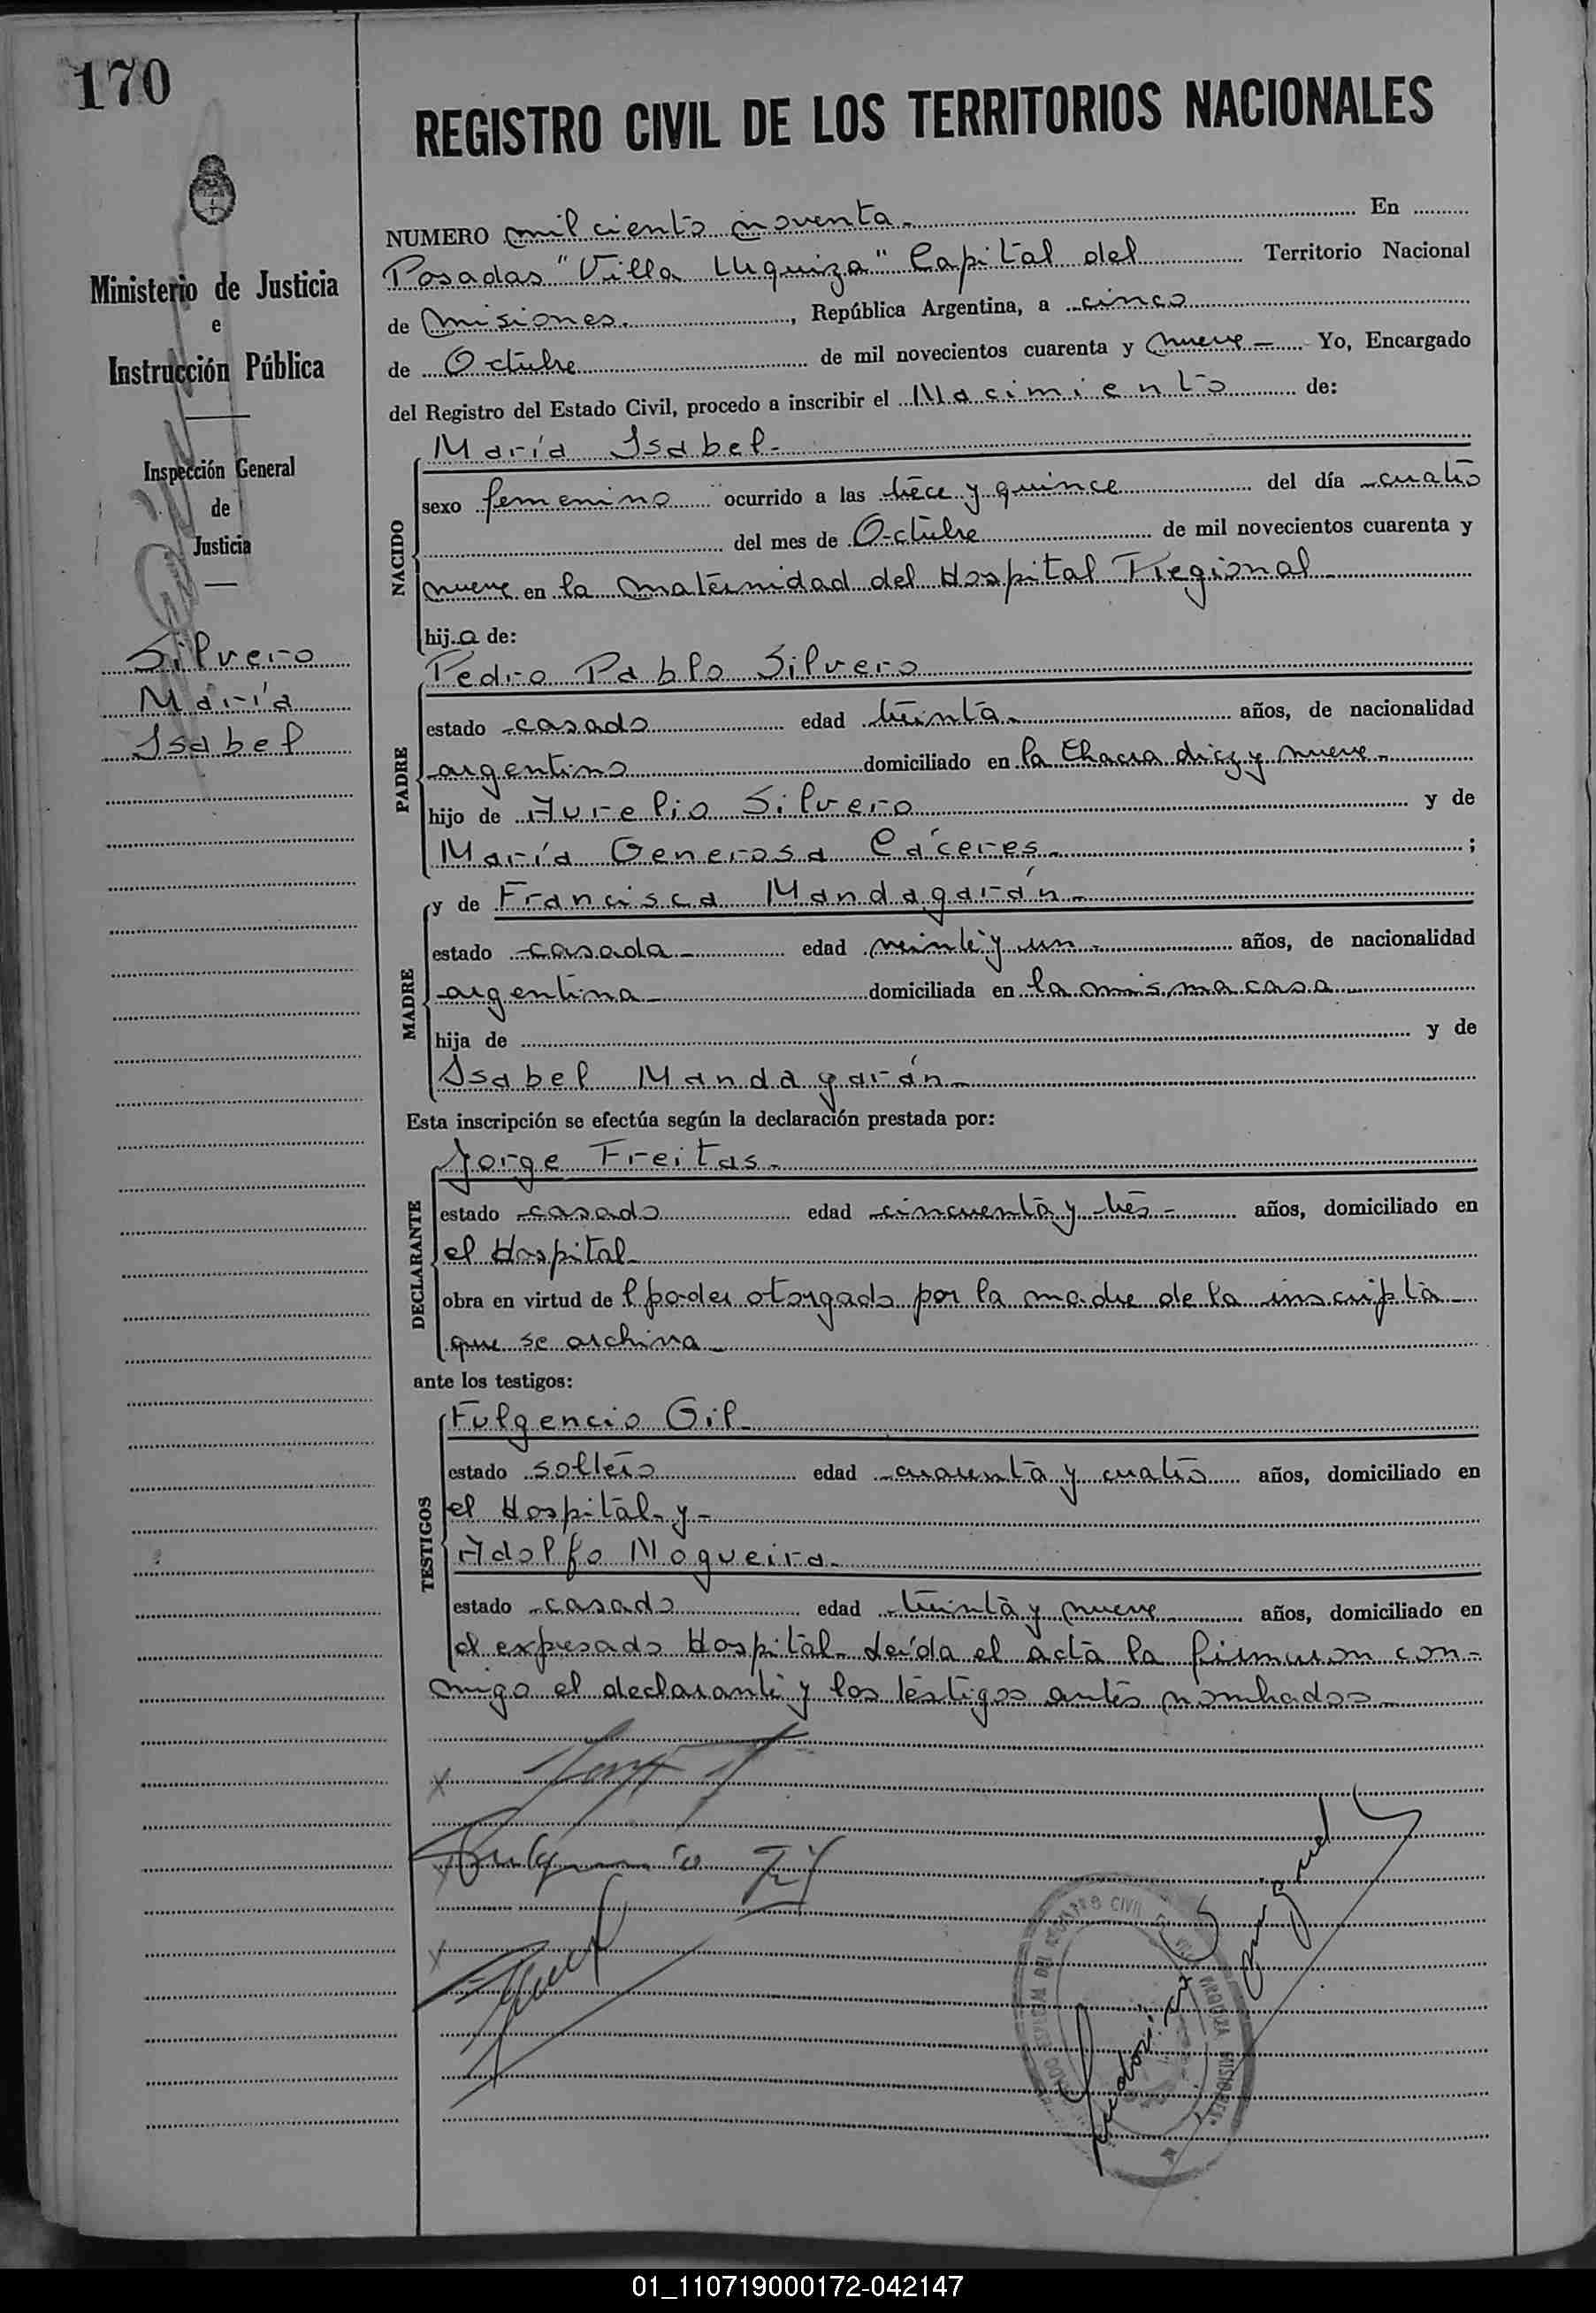 170
REGISTRO CIVIL DE LOS TERRITORIOS NACIONALES
Ministerio de Justicia
e
Instrucción Pública
Inspección General
de
Justicia
Silvero
María
Isabel
NUMERO mil ciento noventa.- En
Posadas "Villa Urquiza" Capital del Territorio Nacional
de Misiones., República Argentina, a cinco
de Octubre de mil novecientos cuarenta y nueve - Yo, Encargado
del Registro del Estado Civil, procedo a inscribir el Nacimiento de:
NACIDO
María Isabel-
sexo femenino ocurrido a las trece y quince del día cuatro
del mes de Octubre de mil novecientos cuarenta y
nueve en la Maternidad del Hospital Regional
hij.a de:
PADRE
Pedro Pablo Silvero
estado casado edad treinta- años, de nacionalidad
argentino domiciliado en la Chacra diez y nueve-
hijo de Aurelio Silvero y de
María Generosa Cáceres- ;
MADRE
y de Francisca Mandagarán-
estado casada- edad veinte y un- años, de nacionalidad
argentina- domiciliada en la misma casa
hija de y de
Isabel Mandagarán-
Esta inscripción se efectúa según la declaración prestada por:
DECLARANTE
Jorge Freitas-
estado casado edad cincuenta y tres- años, domiciliado en
el Hospital-
obra en virtud del poder otorgado por la madre de la inscripta-
que se archiva-
ante los testigos:
TESTIGOS
Fulgencio Gil-
estado soltero edad cuarenta y cuatro años, domiciliado en
el Hospital- y-
Adolfo Nogueira-
estado casado edad treinta y nueve años, domiciliado en
el expresado Hospital- Leída el acta la firmaron con-
migo el declarante y los testigos antes nombrados-
Fulgencio Gil
REGISTRO CIVIL
URQUIZA MISIONES
01_110719000172-042147